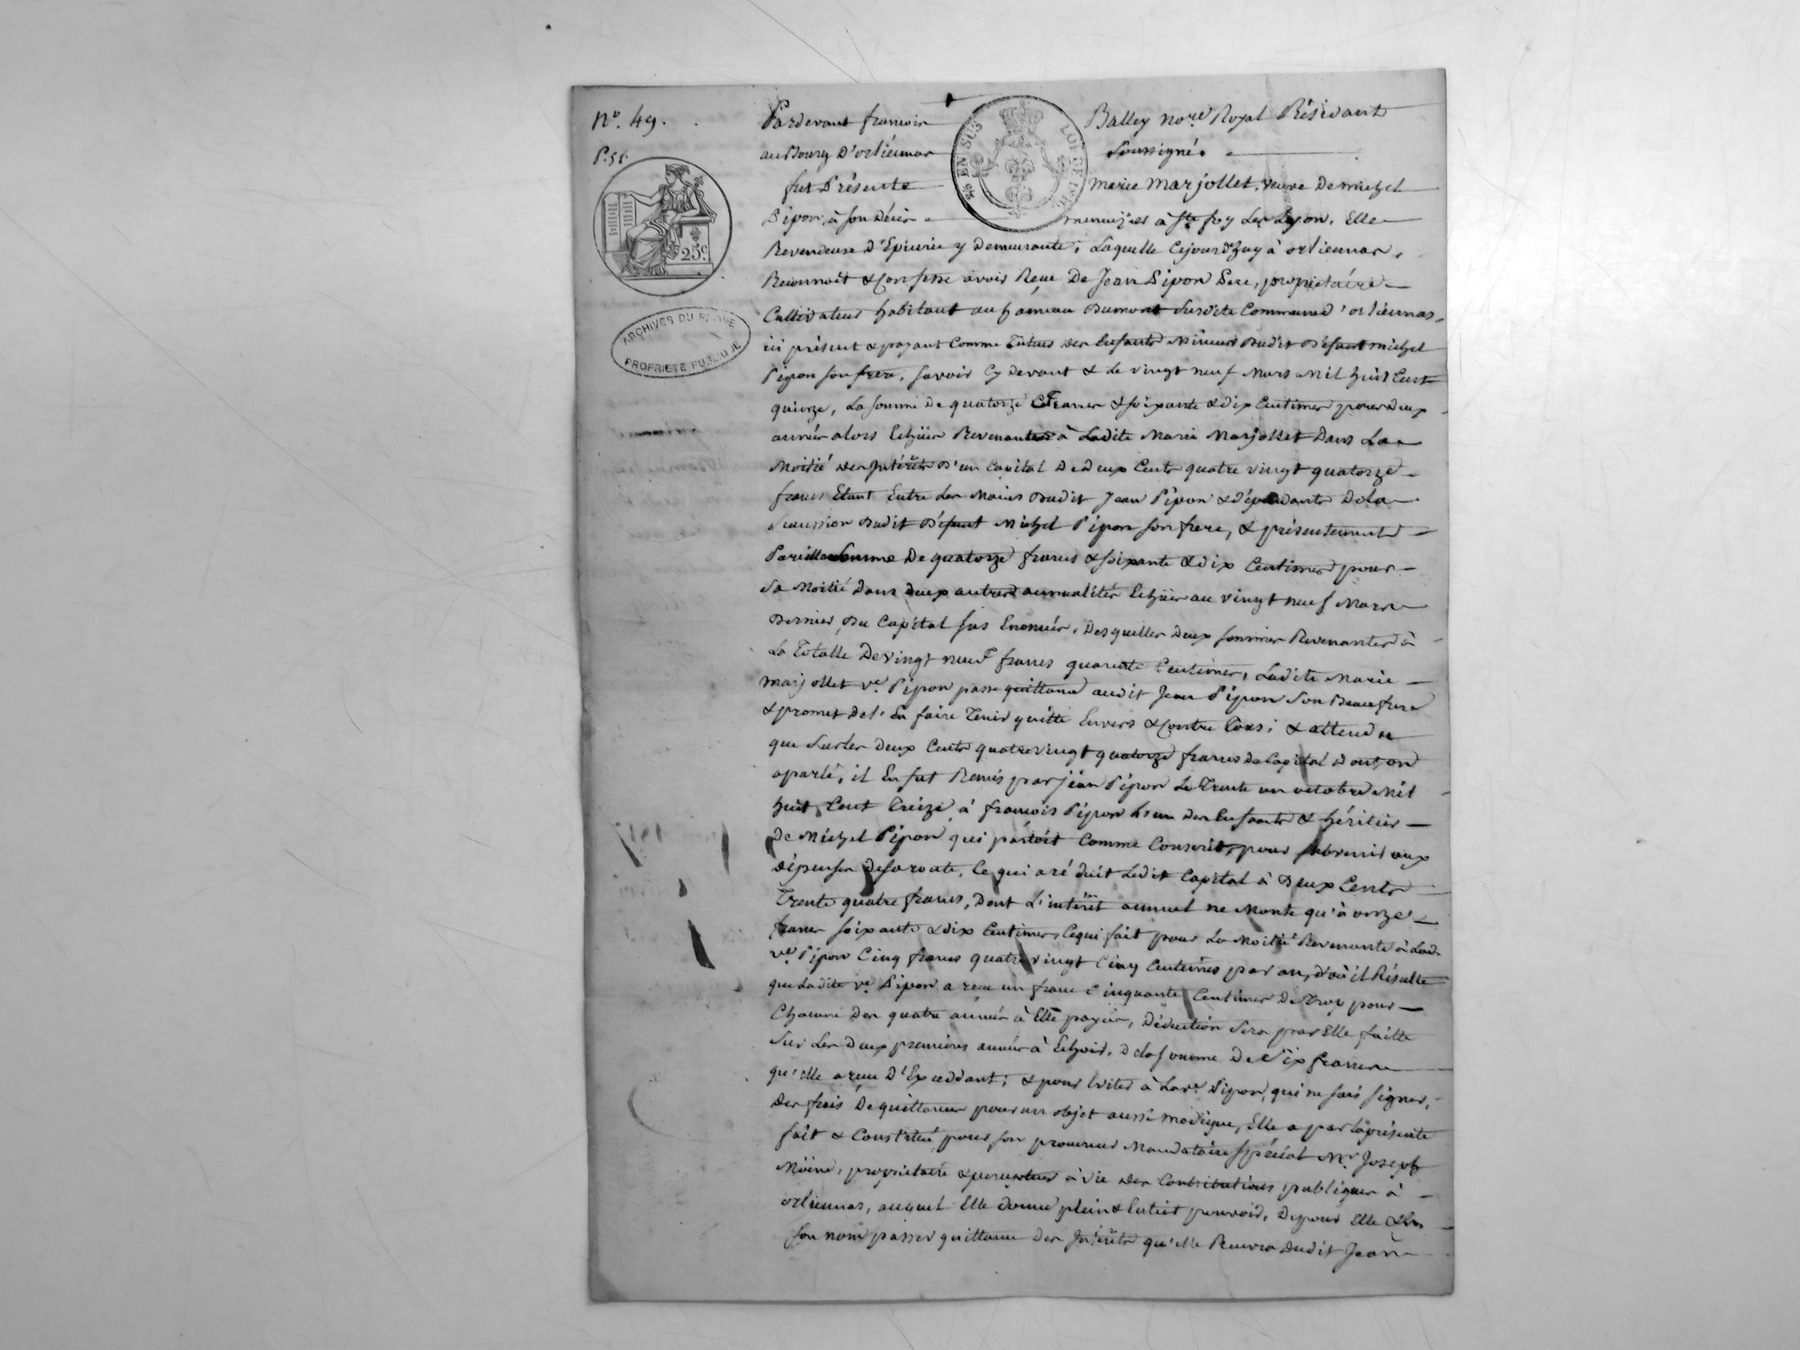 N.º 49.
Pardevant francois Balley no.re Royal Résidant
au Bourg D'orliennas Soussigné.
fut Présente Marie Marjollet, veuve De michel
Pipon, à son Décès à Ste foy Les Lyon, Elle
Revendeuse D'Epicerie y Demeurante; Laquelle Cejourd'huy à orliennas,
Reconnoit & Confesse avoir Reçu De Jean Pipon Pere, propriétaire
Cultivateur habitant au hameau Dumont Susdite Commune d'orliennas,
ici présent & payant Comme Tuteur des Enfants Mineurs Dudit Défunt michel
Pipon son frere, savoir Cy Devant & Le vingt neuf Mars Mil huit Cent
quinze, La somme De quatorze Francs & soixante & dix Centimes pour Deux
années alors Echües Revenantes à Ladite Marie Marjollet Dans La
Moitié des Intérêts D'un Capital De Deux Cents quatre vingt quatorze
francs Etant Entre Les Mains Dudit Jean Pipon & dépendants Dela
Succession Dudit Défunt Michel Pipon son frere, & présentement
Pareille Somme De quatorze francs & soixante & dix Centimes pour
Sa Moitié dans deux autres annualités Echües au vingt neuf Mars
Dernier, Du Capital sus Enoncé, Desquelles Deux sommes Revenantes à
La Totalle De vingt neuf francs quarante Centimes, Ladite Marie
Marjollet v.e Pipon passe quittance audit Jean Pipon Son Beaufrere
& promet De l'En faire Tenir quitte Envers & Contre Tous; & attendu
que Sur Les Deux Cents quatre vingt quatorze francs de Capital Dont on
a parlé, il En fut Remis par jean Pipon Le Trente un octobre Mil
huit Cent Treize à francois Pipon L'un des Enfants & héritiers
De Michel Pipon qui partoit Comme Conscrit, pour subvenir aux
Dépenses de sa route, Ce qui a réduit Ledit Capital à Deux Cents
Trente quatre francs, Dont L'intérêt annuel ne Monte qu'à onze
francs soixante & dix Centimes, Ce qui fait pour La Moitié Revenante à Lad.
v.e Pipon Cinq francs quatre vingt Cinq Centimes par an, d'où il Résulte
que Ladite v.e Pipon a reçu un franc Cinquante Centimes De Trop pour
Chacune Des quatre années à Elle payées, Déduction Sera par Elle faitte
Sur Les Deux premieres années à Echoir, De la somme De Six francs
qu'elle a reçu D'Exceddant; & pour Eviter à La v.e Pipon, qui ne sait signer,
Des frais De quittances pour un objet aussi modique, Elle a par la présente
fait & Constitué pour son procureur Mandataire Spécial M.r Joseph
Moine, propriétaire & percepteur à vie des Contributions publiques à
orliennas, auquel Elle donne plein & Entier pouvoir, De pour Elle & En
son nom passer quittance Des Intérêts qu'elle Recevra Dudit Jean
25.c
EN SUS
LOI DE 1816
ARCHIVES DU RHÔNE
PROPRIÉTÉ PUBLIQUE